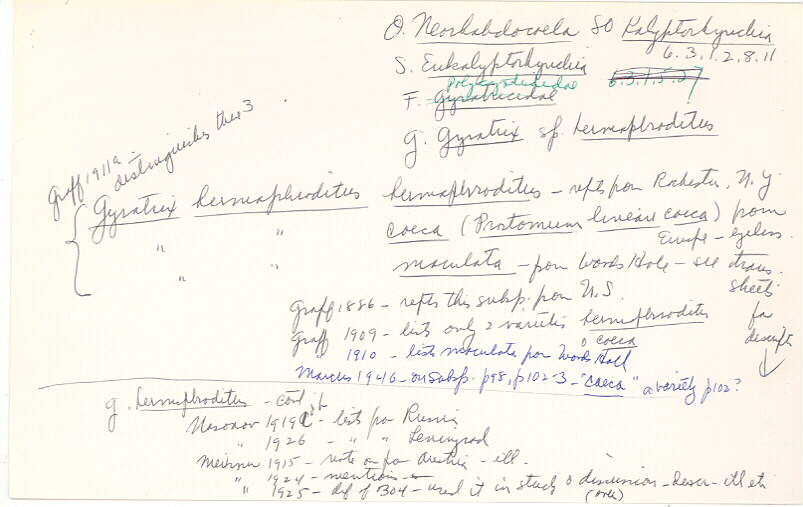 O. Neorhabdocoela SO Kalyptorhynchia
6.3.1.2.8.11
S. Eukalyptorhynchia
Polycystididae 6.3.1.5.27
F. Gyratricidae
g. Gyratrix sp. hermaphroditus
Graff 1911a - distinguishes these 3
Gyratrix hermaphroditus hermaphroditus - repts from Rochester, N.Y.
" " coeca (Prostomum lineare coeca) from Europe - eyeless
" " maculata - from Woods Hole - see trans. sheets for descript
Graff 1886 - repts this subsp. from U.S.
Graff 1909 - lists only 2 varieties hermaphroditus
o coeca
" 1910 - lists maculata from Woods Hall
Marcus 1946 - on subsp. p98, p102-3 - "coeca" a variety p102?
g. hermaphroditus - cont
Nasonov 1919 - lists for Russia
" 1926 - " " Leningrad
Meixner 1915 - note on for Austria - ill.
" 1924 - mention
" 1925 - def of B04 - used it in study o discussion - descr - ill etc
(over)